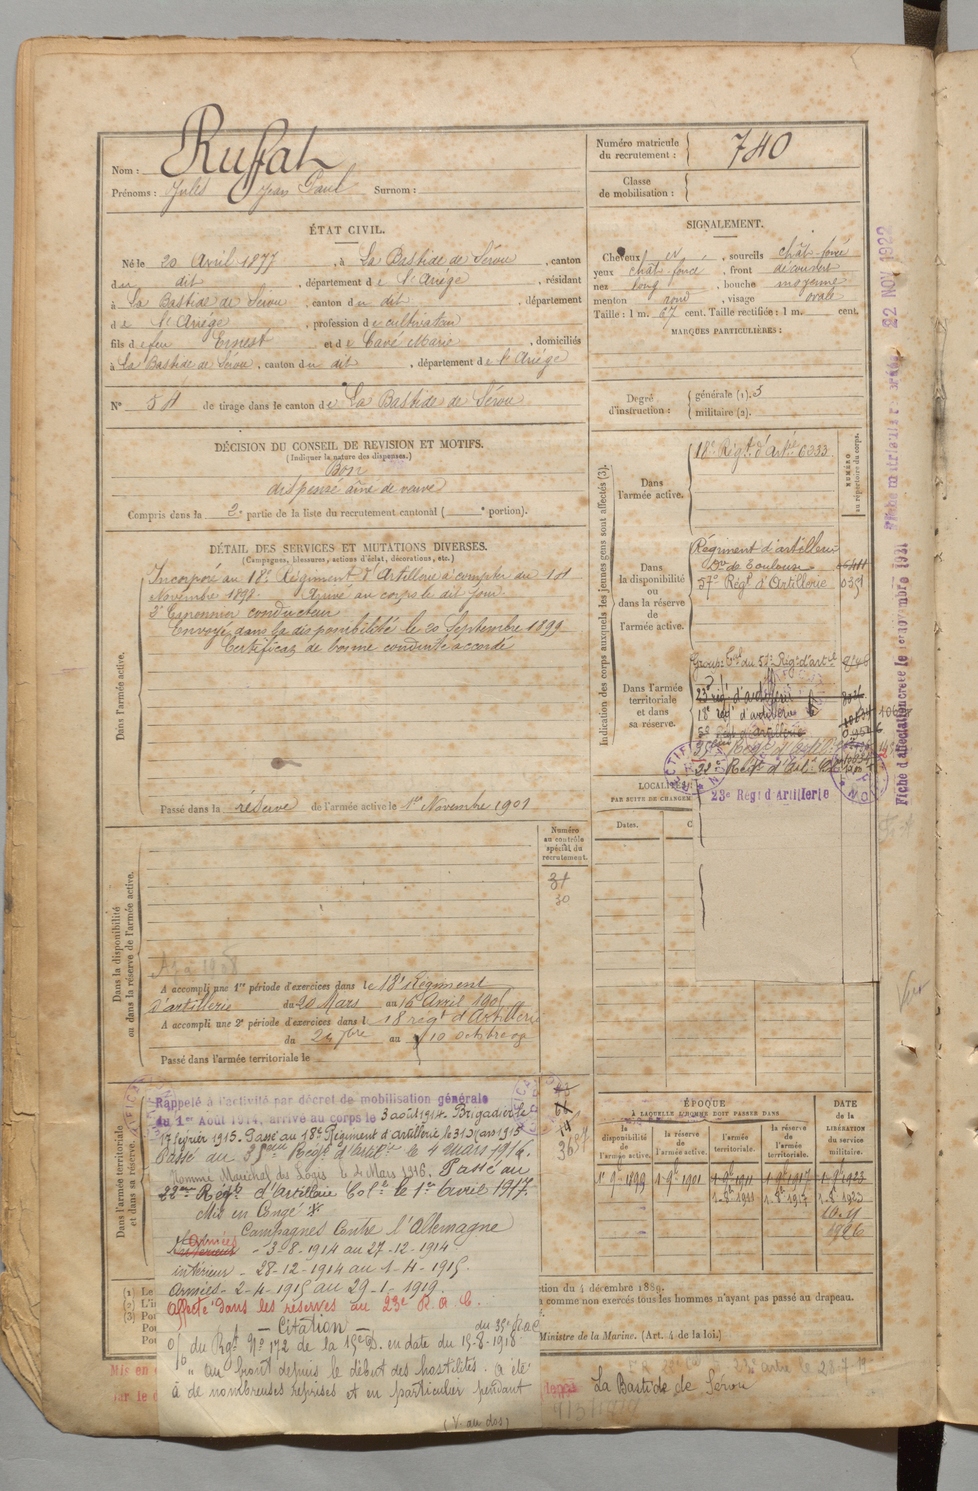 Nom : Ruffat
Prénoms : Jules Jean Paul Surnom :
Numéro matricule du recrutement : 740
Classe de mobilisation :
ÉTAT CIVIL.
Né le 20 Avril 1877, à La Bastide de Sérou, canton
du dit, département de l'Ariége, résidant
à La Bastide de Sérou, canton du dit, département
de l'Ariége, profession de cultivateur
fils de feu Ernest et de Cavé Marie, domiciliés
à La Bastide de Sérou, canton du dit, département de l'Ariége
N° 51 de tirage dans le canton de La Bastide de Sérou
SIGNALEMENT.
Cheveux et, sourcils chât. foncé
yeux chât foncé, front découvert
nez long, bouche moyenne
menton rond, visage ovale
Taille : 1 m. 67 cent. Taille rectifiée : 1 m. cent.
MARQUES PARTICULIÈRES :
Degré d'instruction : générale (1). 3
militaire (2).
DÉCISION DU CONSEIL DE REVISION ET MOTIFS.
(Indiquer la nature des dispenses.)
Bon
dispensé aîné de veuve
Compris dans la 2e partie de la liste du recrutement cantonal ( e portion).
DÉTAIL DES SERVICES ET MUTATIONS DIVERSES.
(Campagnes, blessures, actions d'éclat, décorations, etc.)
Dans l'armée active.
Incorporé au 18e Régiment d'Artillerie à compter du 14
Novembre 1898. Arrivé au corps le dit jour.
2e Canonnier conducteur
Envoyé dans la disponibilité le 20 Septembre 1899
Certificat de bonne conduite accordé
Passé dans la réserve de l'armée active le 1er Novembre 1901
Indication des corps auxquels les jeunes gens sont affectés (3).
NUMÉRO au répertoire du corps.
Dans l'armée active.
18e Régt d'Artie 0333
Dans la disponibilité ou dans la réserve de l'armée active.
Régiment d'artillerie
Don de Toulouse
57e Régt d'Artillerie 0351
Dans l'armée territoriale et dans sa réserve.
Groupe Tal du 57e Régt d'artie
23e régt d'artillerie
18e régt d'artillerie
35ème Régt d'Artillie
22e Régt d'Art. Col.
23e Régt d'Artillerie
Fiche d'affectation créée le novembre 1921
22 NOV 1922
LOCALITÉS
PAR SUITE DE CHANGEM
Dates. C
Numéro au contrôle spécial du recrutement.
31
30
Dans la disponibilité ou dans la réserve de l'armée active.
A accompli une 1re période d'exercices dans le 18e Régiment
d'artillerie du 20 Mars au 16 Avril 1905
A accompli une 2e période d'exercices dans l 18 régt d'Artillerie
du 24 7bre au 10 octobre 08
Passé dans l'armée territoriale le
Dans l'armée territoriale et dans sa réserve.
Rappelé à l'activité par décret de mobilisation générale
du 1er Août 1914, arrivé au corps le 3 août 1914. Brigadier le
17 février 1915. Passé au 18e Régiment d'artillerie le 31 Mars 1915
Passé au 35ème Régt d'Artie le 4 mars 1916.
Nommé Maréchal des Logis le 4 Mars 1916. Passé au
22me Régt d'Artillerie Colle le 1er Avril 1917.
Mis en Congé
Campagnes Contre l'Allemagne
Armées
intérieur - 3-8-1914 au 27-12-1914
intérieur - 28-12-1914 au 1-4-1915.
Armées - 2-4-1915 au 29-1-1919.
Affecté dans les réserves au 23e R. A. C.
- Citation - du 35e R.A.C
O/ du Rgt N° 172 de la 15e D. en date du 15-8-1918
" au front depuis le début des hostilités. a été
à de nombreuses reprises et en particulier pendant
(V. au dos)
ÉPOQUE
À LAQUELLE L'HOMME DOIT PASSER DANS
la disponibilité de l'armée active.
la réserve de l'armée active.
l'armée territoriale.
la réserve de l'armée territoriale.
DATE de la LIBÉRATION du service militaire.
1er 9bre 1899 1er 9bre 1901 1-9bre 1911 1-9bre 1917 1-9bre 1923
1-9bre 1911 1-8bre 1917 1-8bre 1923
1926
ction du 4 décembre 1889.
comme non exercés tous les hommes n'ayant pas passé au drapeau.
Ministre de la Marine. (Art. 4 de la loi.)
Mis en
La Bastide de Sérou
Vu